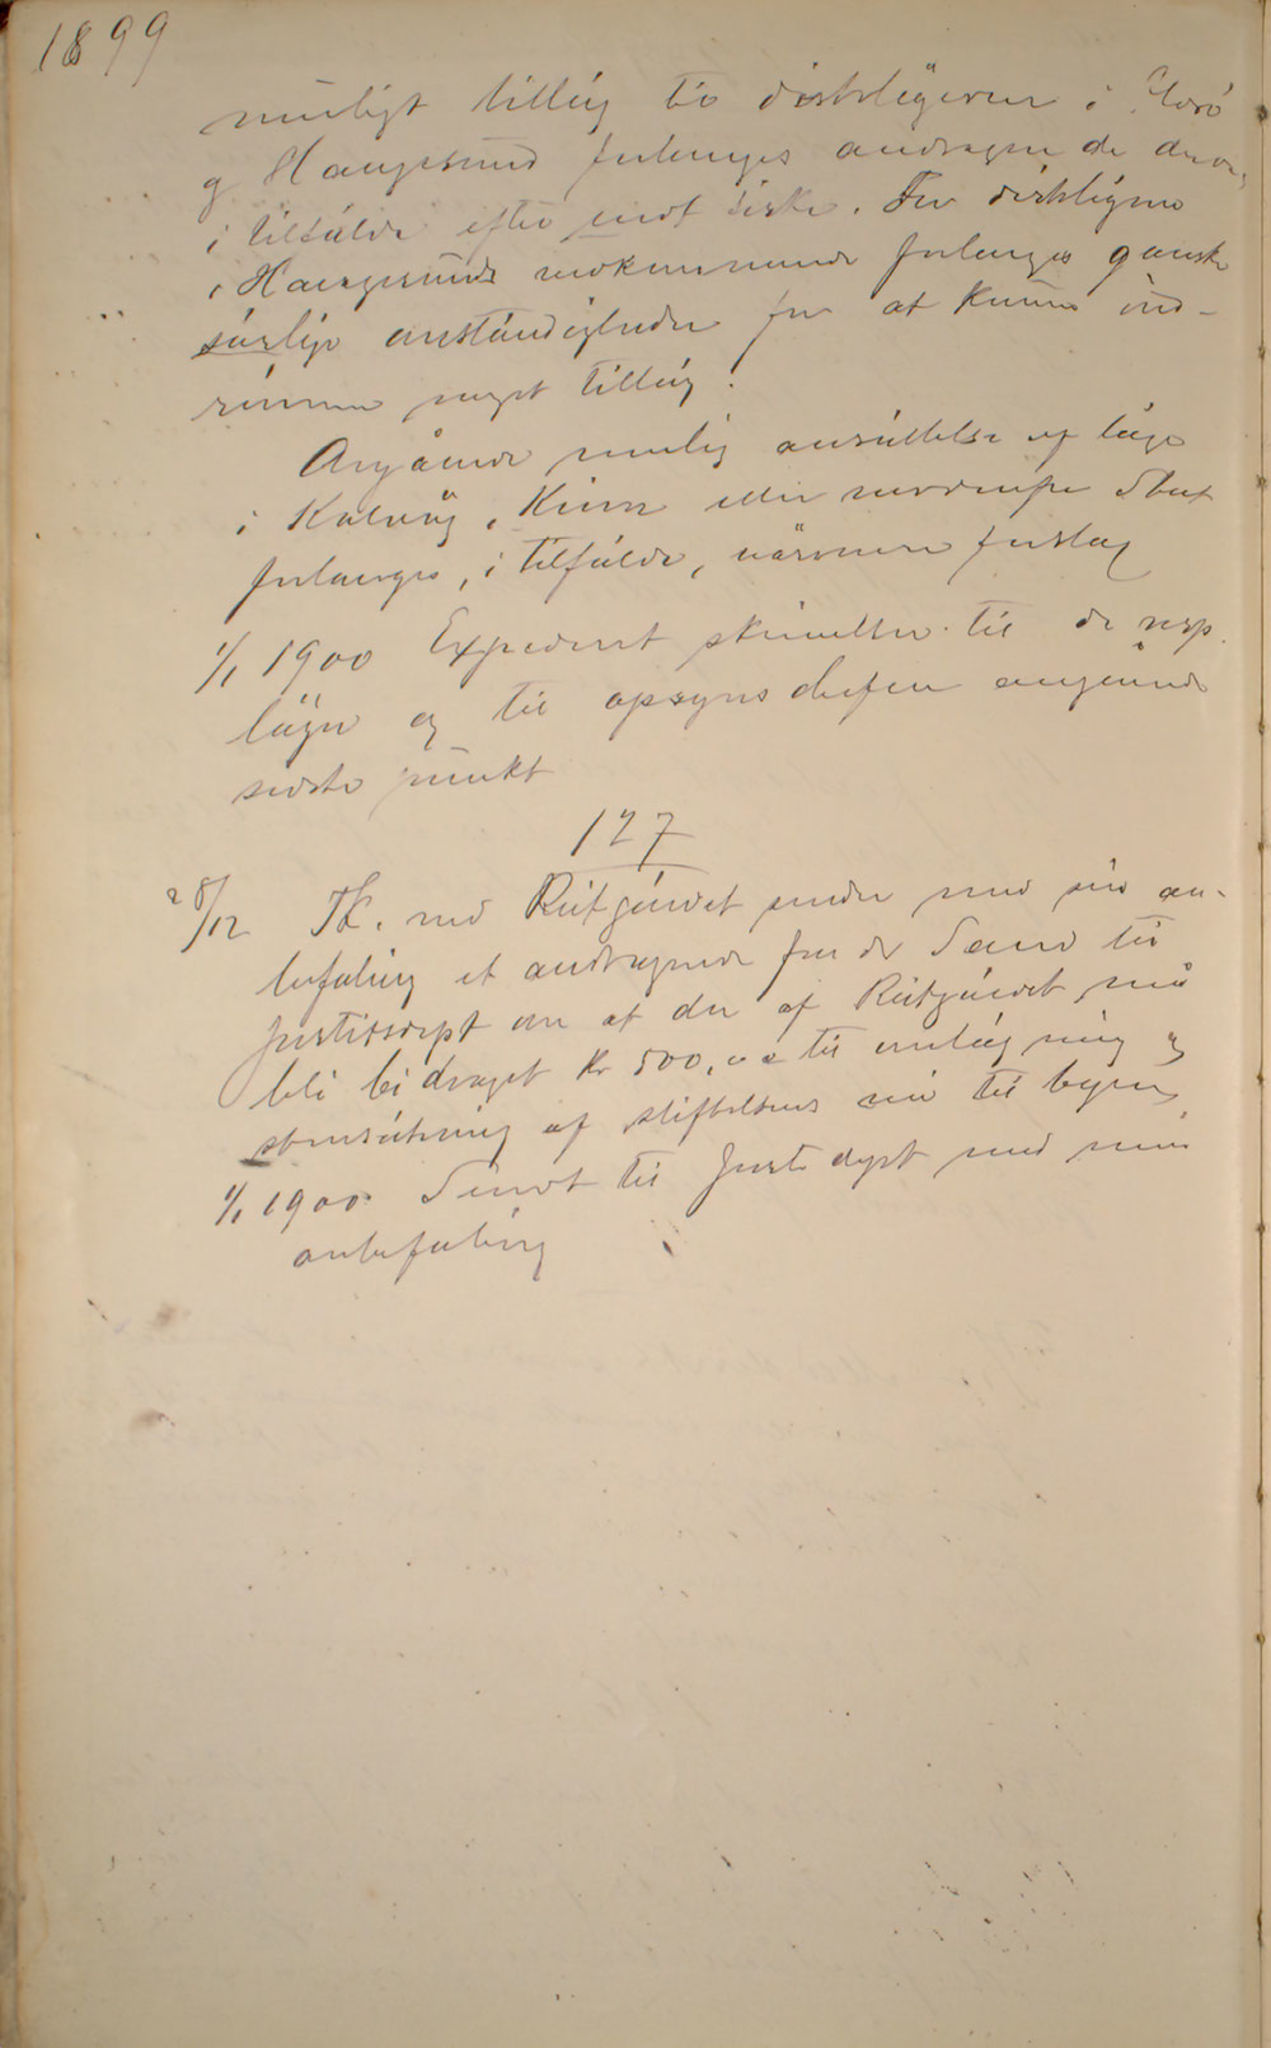 1899
muligt tillæg til distrlægerne i Florø
og Haugesund forlanges andragende derom
i tilfælde efter endt fiske. For distrlægerne
i Haugesunds vedkommende forlanges ganske
særlige omstændigheder for at kunne ind-
rømme noget tillæg.
Angående mulig ansættelse af læge
i Kalvåg, Kinn eller nordenfor Stat
forlanges, i tilfælde, nærmere forslag
1/1 1900 Expederet skrivelser til de resp.
læger og til opsynschefen angående
sidste punkt
127
28/12 Tk. ved Reitgjærdet sender med sin an-
befaling et andragende fra dr Sand til
Justitsdept om at der af Reitgjærdet må
bli bidraget Kr 500,00 til omlægning og
stensætning af stiftelsens vei til byen
1/1 1900. Sendt til Justdept med min
anbefaling